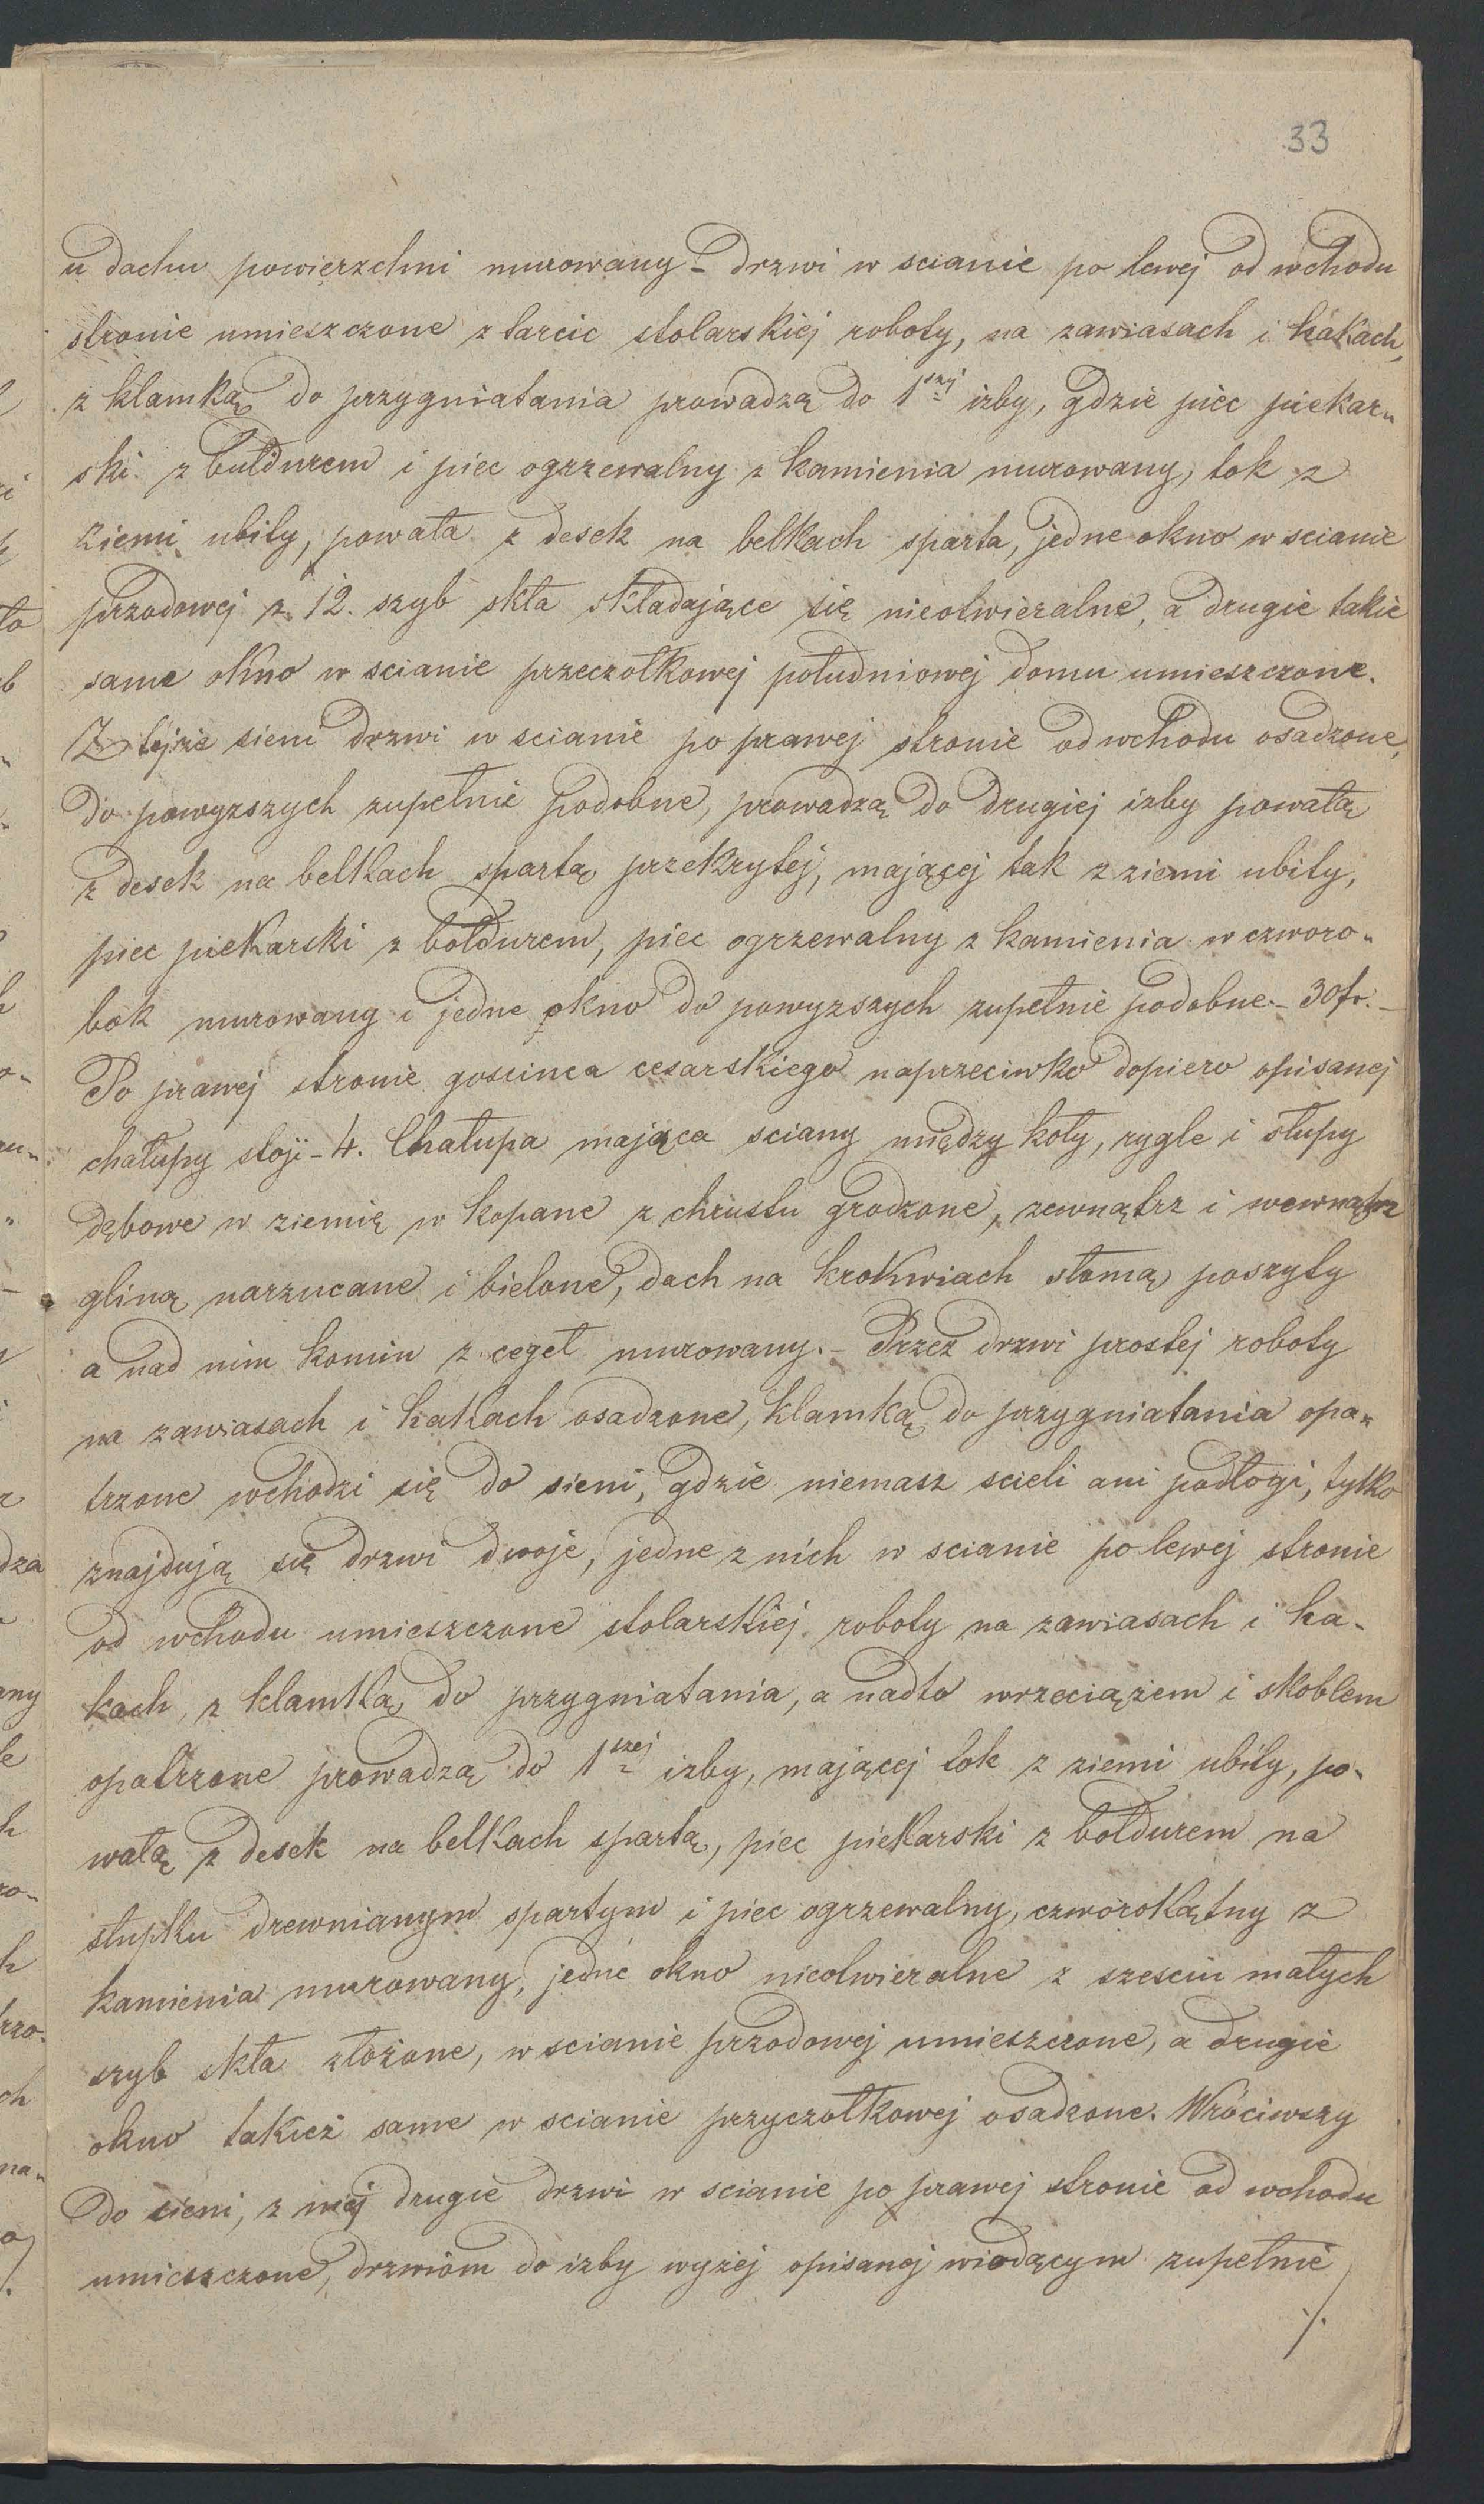 33
u dachu powierzchni murowany – drzwi w scianie po lewej od wchodu
stronie umieszczone z tarcic stolarskiej roboty, na zawiasach i hakach,
z klamką do przygniatania prowadzą do 1szej izby, gdzie piec piekar„
ski z bułdurem i piec ogrzewalny z kamienia murowany, tok z
ziemi ubity, powała z desek na belkach sparta, jedne okno w scianie
przodowej z 12. szyb skła składające się nieotwieralne, a drugie takie
same okno w scianie przeczołkowej południowej domu umieszczone.
Z tejże sieni drzwi w scianie po prawej stronie od wchodu osadzone,
do powyzszych zupełnie podobne, prowadzą do drugiej izby powałą
z desek na belkach spartą przekrytej, mającej tok z ziemi ubity,
piec piekarski z bołdurem, piec ogrzewalny z kamienia w czworo„
bok murowany i jedne okno do powyzszych zupełnie podobne – 30 fr. –
Po prawej stronie goscinca cesarskiego naprzeciwko dopiero opisanej
chałupy stoji – 4. Chałupa mająca sciany między koły, rygle i słupy
dębowe w ziemię w kopane z chrustu grodzone, zewnątrz i wewnątrz
gliną narzucane i bielone, dach na krokwiach słomą poszyty
a nad nim komin z cegeł murowany. – Przez drzwi prostej roboty
na zawiasach i hakach osadzone, klamką do przygniatania opa„
trzone wchodzi się do sieni, gdzie niemasz scieli ani podłogi, tylko
znajdują się drzwi dwoje, jedne z nich w scianie po lewej stronie
od wchodu umieszczone stolarskiej roboty na zawiasach i ha-
kach, z klamką do przygniatania, a nadto wrzeciążem i skoblem
opatrzone prowadzą do 1szej izby, mającej tok z ziemi ubity, po„
wałą z desek na belkach spartą, piec piekarski z bołdurem na
słupku drewnianym spartym i piec ogrzewalny, czworokątny z
kamienia murowany, jedne okno nieotwieralne z szesciu małych
szyb skła złożone, w scianie przodowej umieszczone, a drugie
okno takież same w scianie przyczołkowej osadzone. Wróciwszy
do sieni, z niej drugie drzwi w scianie po prawej stronie od wchodu
umieszczone, drzwiom do izby wyżej opisanej wiodącym zupełnie
./.